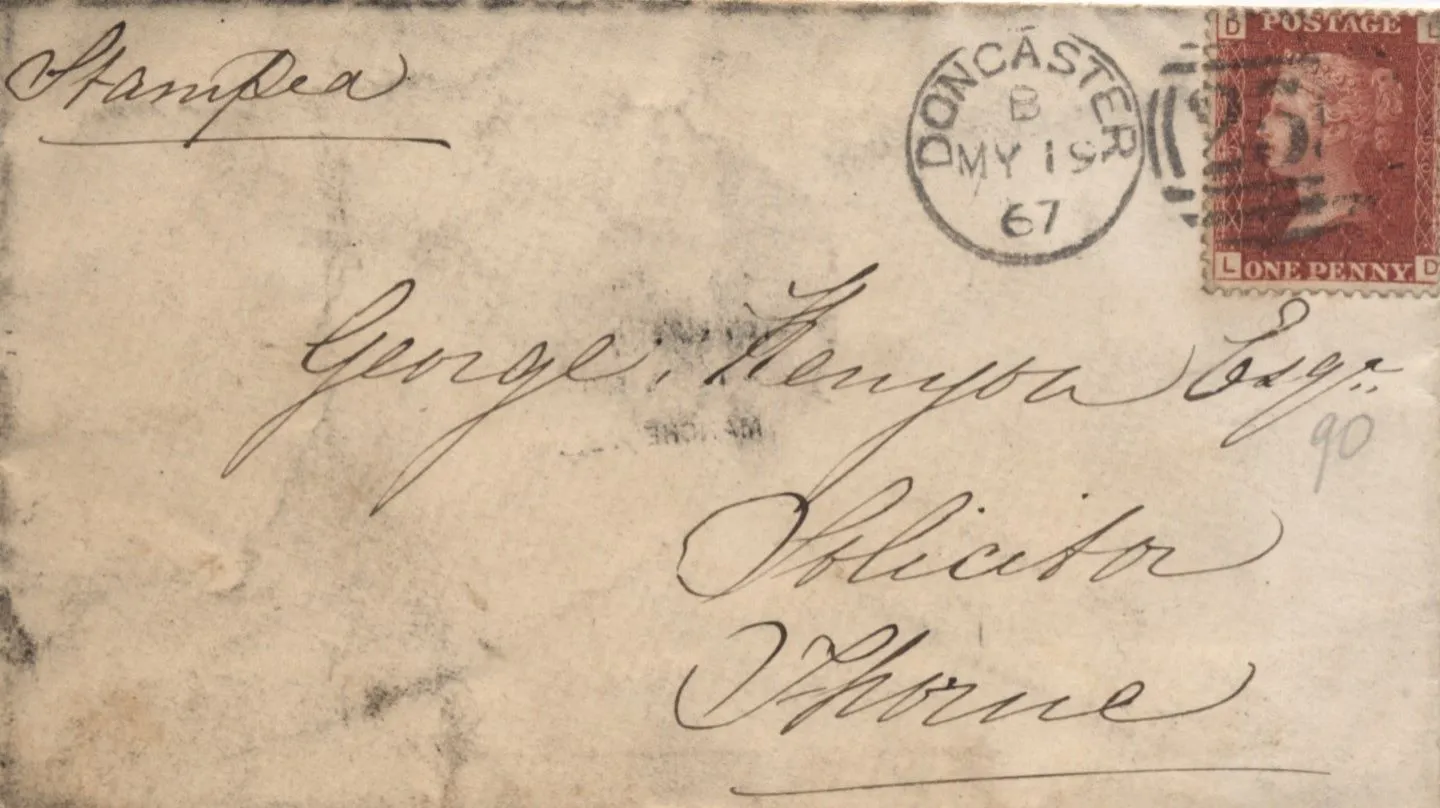 Stamped
DONCASTER
B
MY 19
67
D POSTAGE L
L ONE PENNY D
George Kenyon Esqr.
90
Solicitor
Thorne